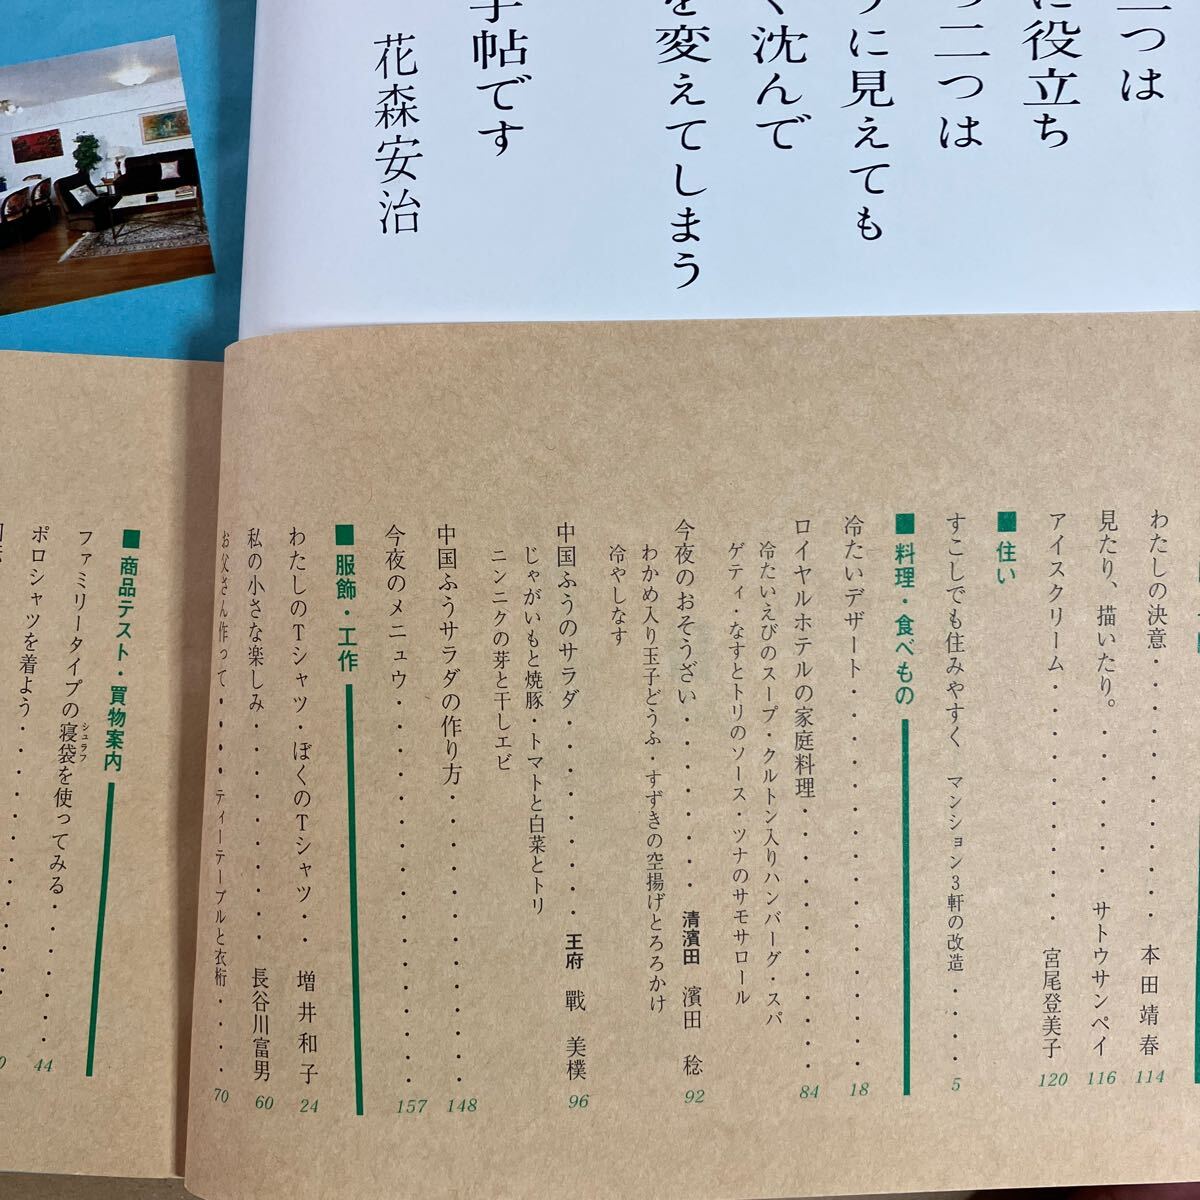 二つは
に役立ち
つ二つは
うに見えても
く沈んで
を変えてしまう
手帖です
花森安治
わたしの決意・・・・・・・・・・本田靖春 114
見たり、描いたり。・・・・・・サトウサンペイ 116
アイスクリーム・・・・・・・・・宮尾登美子 120
■住い
すこしでも住みやすく マンション3軒の改造・・・・5
■料理・食べもの
冷たいデザート・・・・・・・・・・・・・・・18
ロイヤルホテルの家庭料理・・・・・・・・・・・84
冷たいえびのスープ・クルトン入りハンバーグ・スパ
ゲティ・なすとトリのソース・ツナのサモサロール
今夜のおそうざい・・・・・・・清濱田 濱田 稔 92
わかめ入り玉子どうふ・すずきの空揚げとろろかけ
冷やしなす
中国ふうのサラダ・・・・・・・王府 戰 美樸 96
じゃがいもと焼豚・トマトと白菜とトリ
ニンニクの芽と干しエビ
中国ふうサラダの作り方・・・・・・・・・・・148
今夜のメニュウ・・・・・・・・・・・・・・・157
■服飾・工作
わたしのTシャツ・ぼくのTシャツ・・増井和子 24
私の小さな楽しみ・・・・・・・・・長谷川富男 60
お父さん作って・・・・・ティーテーブルと衣桁・・・・70
■商品テスト・買物案内
ファミリータイプの寝袋を使ってみる・・・・・・44
シュラフ
ポロシャツを着よう・・・・・・・・・・